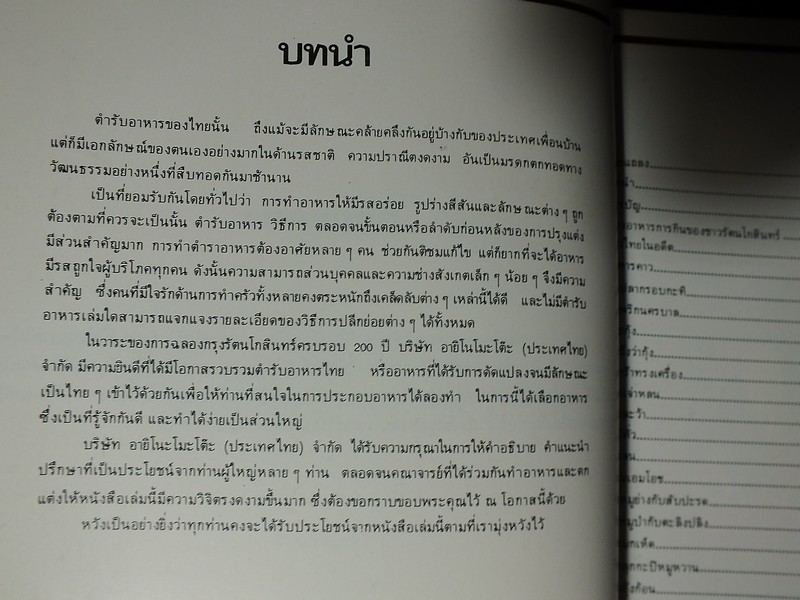 บทนำ
ตำรับอาหารของไทยนั้น ถึงแม้จะมีลักษณะคล้ายคลึงกันอยู่บ้างกับของประเทศเพื่อนบ้าน
แต่ก็มีเอกลักษณ์ของตนเองอย่างมากในด้านรสชาติ ความปราณีตงดงาม อันเป็นมรดกตกทอดทาง
วัฒนธรรมอย่างหนึ่งที่สืบทอดกันมาช้านาน
เป็นที่ยอมรับกันโดยทั่วไปว่า การทำอาหารให้มีรสอร่อย รูปร่างสีสันและลักษณะต่าง ๆ ถูก
ต้องตามที่ควรจะเป็นนั้น ตำรับอาหาร วิธีการ ตลอดจนขั้นตอนหรือลำดับก่อนหลังของการปรุงแต่ง
มีส่วนสำคัญมาก การทำตำราอาหารต้องอาศัยหลาย ๆ คน ช่วยกันติชมแก้ไข แต่ก็ยากที่จะได้อาหาร
มีรสถูกใจผู้บริโภคทุกคน ดังนั้นความสามารถส่วนบุคคลและความช่างสังเกตเล็ก ๆ น้อย ๆ จึงมีความ
สำคัญ ซึ่งคนที่มีใจรักด้านการทำครัวทั้งหลายคงตระหนักถึงเคล็ดลับต่าง ๆ เหล่านี้ได้ดี และไม่มีตำรับ
อาหารเล่มใดสามารถแจกแจงรายละเอียดของวิธีการปลีกย่อยต่าง ๆ ได้ทั้งหมด
ในวาระของการฉลองกรุงรัตนโกสินทร์ครบรอบ 200 ปี บริษัท อายิโนโมะโต๊ะ (ประเทศไทย)
จำกัด มีความยินดีที่ได้มีโอกาสรวบรวมตำรับอาหารไทย หรืออาหารที่ได้รับการดัดแปลงจนมีลักษณะ
เป็นไทย ๆ เข้าไว้ด้วยกันเพื่อให้ท่านที่สนใจในการประกอบอาหารได้ลองทำ ในการนี้ได้เลือกอาหาร
ซึ่งเป็นที่รู้จักกันดี และทำได้ง่ายเป็นส่วนใหญ่
บริษัท อายิโนะโมะโต๊ะ (ประเทศไทย) จำกัด ได้รับความกรุณาในการให้คำอธิบาย คำแนะนำ
ปรึกษาที่เป็นประโยชน์จากท่านผู้ใหญ่หลาย ๆ ท่าน ตลอดจนคณาจารย์ที่ได้ร่วมกันทำอาหารและตก
แต่งให้หนังสือเล่มนี้มีความวิจิตรงดงามขึ้นมาก ซึ่งต้องขอกราบขอบพระคุณไว้ ณ โอกาสนี้ด้วย
หวังเป็นอย่างยิ่งว่าทุกท่านคงจะได้รับประโยชน์จากหนังสือเล่มนี้ตามที่เรามุ่งหวังไว้
อาหารการกินของชาวรัตนโกสินทร์
ไทยในอดีต